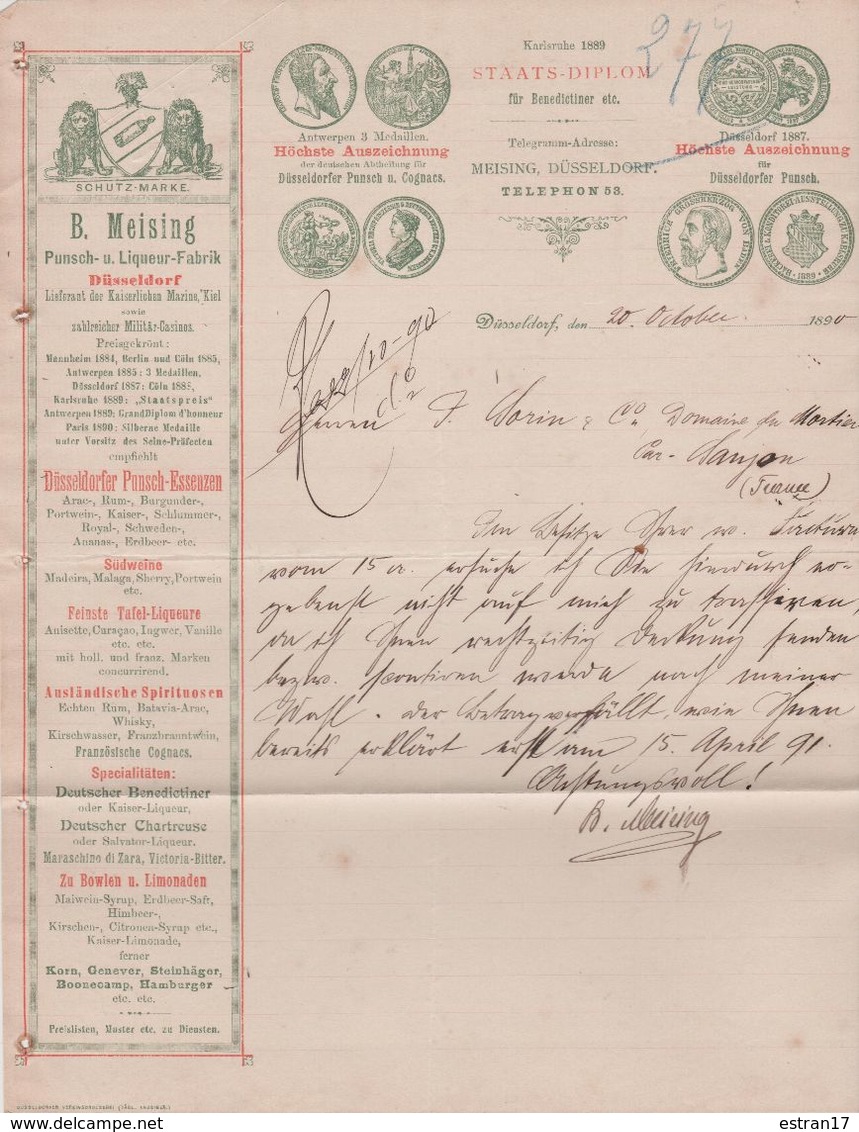 SCHUTZ-MARKE.
B. Meising
Punsch- u. Liqueur-Fabrik
Düsseldorf
Lieferant der Kaiserlichen Marine, Kiel
sowie
zahlreicher Militär-Casinos.
Preisgekrönt:
Mannheim 1884, Berlin und Cöln 1885,
Antwerpen 1885: 3 Medaillen,
Düsseldorf 1887: Cöln 1888,
Karlsruhe 1889: „Staatspreis"
Antwerpen 1889: GrandDiplom d'honneur
Paris 1890: Silberne Medaille
unter Vorsitz des Seine-Präfecten
empfiehlt
Düsseldorfer Punsch-Essenzen
Arac-, Rum-, Burgunder-,
Portwein-, Kaiser-, Schlummer-,
Royal-, Schweden-,
Ananas-, Erdbeer- etc.
Südweine
Madeira, Malaga, Sherry, Portwein
etc.
Feinste Tafel-Liqueure
Anisette, Curaçao, Ingwer, Vanille
etc. etc.
mit holl. und franz. Marken
concurrirend.
Ausländische Spirituosen
Echten Rum, Batavia-Arac,
Whisky,
Kirschwasser, Franzbranntwein,
Französische Cognacs.
Specialitäten:
Deutscher Benedictiner
oder Kaiser-Liqueur,
Deutscher Chartreuse
oder Salvator-Liqueur.
Maraschino di Zara, Victoria-Bitter.
Zu Bowlen u. Limonaden
Maiwein-Syrup, Erdbeer-Saft,
Himbeer-,
Kirschen-, Citronen-Syrup etc.,
Kaiser-Limonade,
ferner
Korn, Genever, Steinhäger,
Boonecamp, Hamburger
etc. etc.
Preislisten, Muster etc. zu Diensten.
Antwerpen 3 Medaillen.
Höchste Auszeichnung
der deutschen Abtheilung für
Düsseldorfer Punsch u. Cognacs.
Karlsruhe 1889
STAATS-DIPLOM
für Benedictiner etc.
Telegramm-Adresse:
MEISING, DÜSSELDORF.
TELEPHON 53.
277
Düsseldorf 1887.
Höchste Auszeichnung
für
Düsseldorfer Punsch.
FRIEDRICH GROSSHERZOG VON BADEN
1889
Düsseldorf, den 20. October 1890
Herren J. Sorin & Co, Domaine du Mortier
Par- Saujon
(France)
Im Besitze Ihrer w. Factura
vom 15 cr. ersuche ich Sie hierdurch er-
gebenst nicht auf mich zu trassiren,
da ich Ihnen rechtzeitig Deckung senden
bezw. scontiren werde nach meiner
Wahl. der Betrag verfällt, wie Ihnen
bereits erklärt erst am 15. April 91.
Achtungsvoll!
B. Meising
estran17